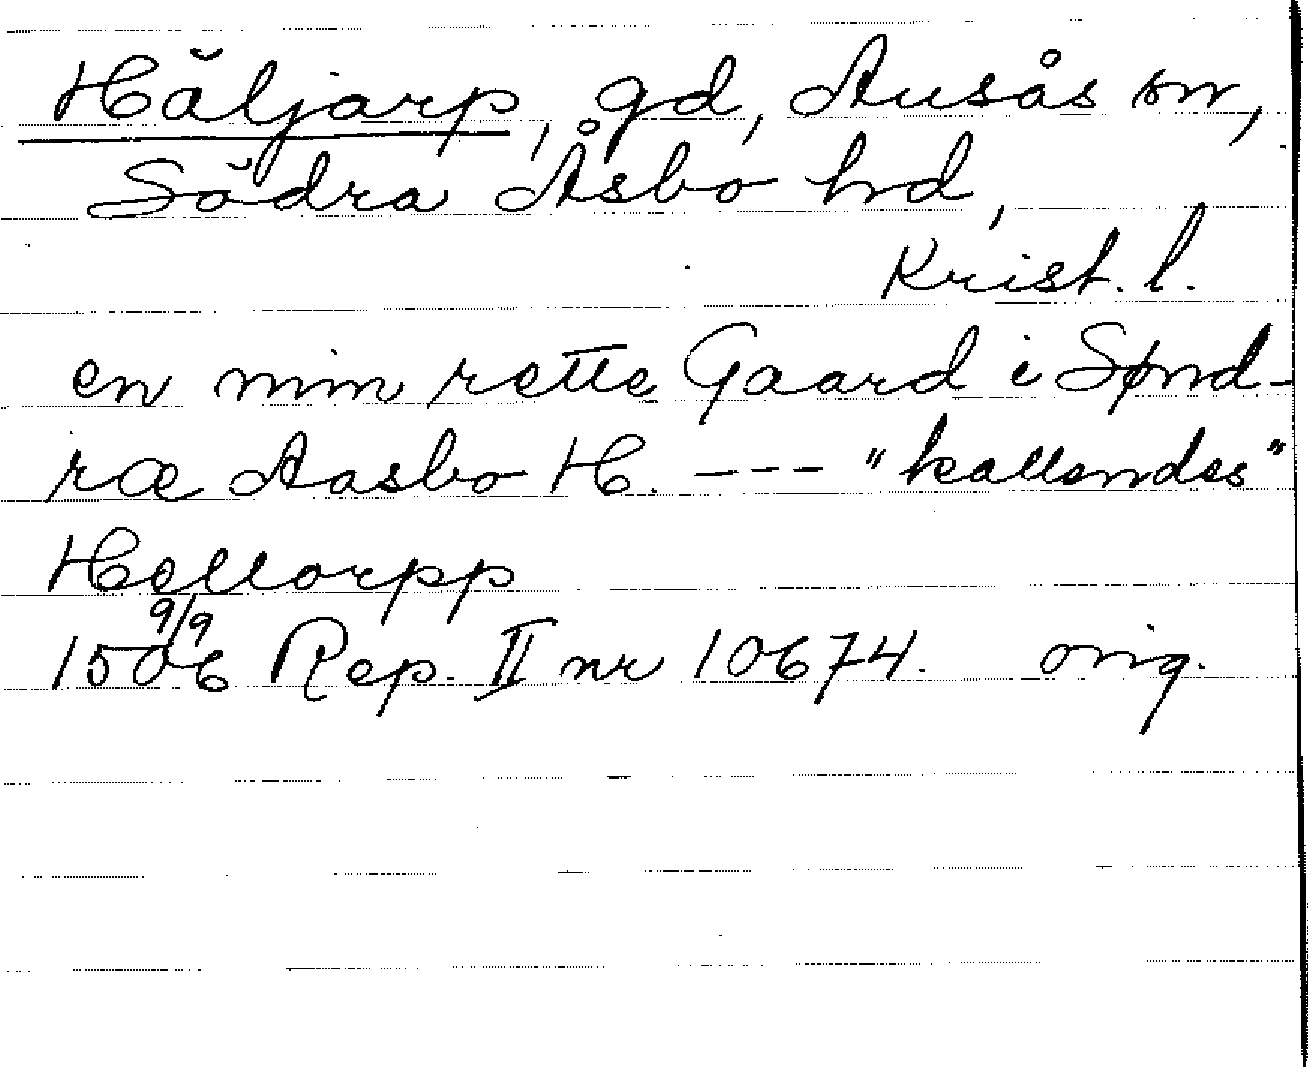 Häljarp, gd, Ausås sn,
Södra Åsbo hd,
Krist. l.
en min rette Gaard i Sønd-
ræ Aasbo H. --- "kallendes"
Hellorpp
1506 9/9 Rep. II nr 10674. orig.